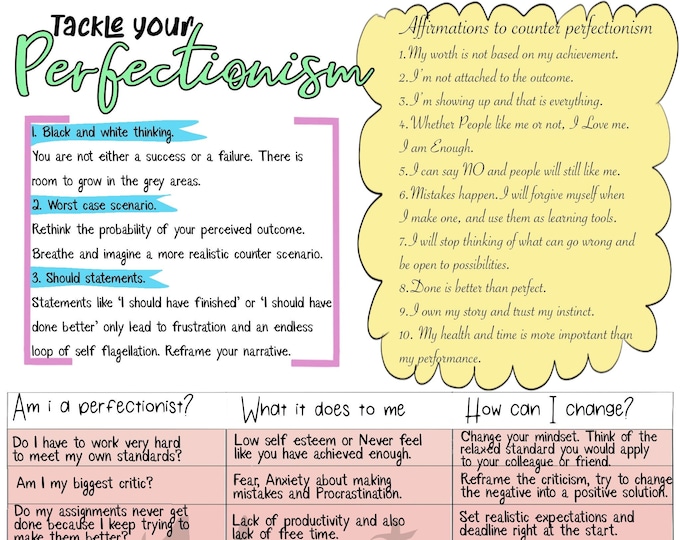 Tackle your
Perfectionism
1. Black and white thinking.
You are not either a success or a failure. There is
room to grow in the grey areas.
2. Worst case scenario.
Rethink the probability of your perceived outcome.
Breathe and imagine a more realistic counter scenario.
3. Should statements.
Statements like 'I should have finished' or 'I should have
done better' only lead to frustration and an endless
loop of self flagellation. Reframe your narrative.
Affirmations to counter perfectionism
1. My worth is not based on my achievement.
2. I'm not attached to the outcome.
3. I'm showing up and that is everything.
4. Whether People like me or not, I Love me.
I am Enough.
5. I can say NO and people will still like me.
6. Mistakes happen. I will forgive myself when
I make one, and use them as learning tools.
7. I will stop thinking of what can go wrong and
be open to possibilities.
8. Done is better than perfect.
9. I own my story and trust my instinct.
10. My health and time is more important than
my performance.
Am i a perfectionist?
What it does to me
How can I change?
Do I have to work very hard
to meet my own standards?
Low self esteem or Never feel
like you have achieved enough.
Change your mindset. Think of the
relaxed standard you would apply
to your colleague or friend.
Am I my biggest critic?
Fear, Anxiety about making
mistakes and Procrastination.
Reframe the criticism, try to change
the negative into a positive solution.
Do my assignments never get
done because I keep trying to
make them better?
Lack of productivity and also
lack of free time.
Set realistic expectations and
deadline right at the start.